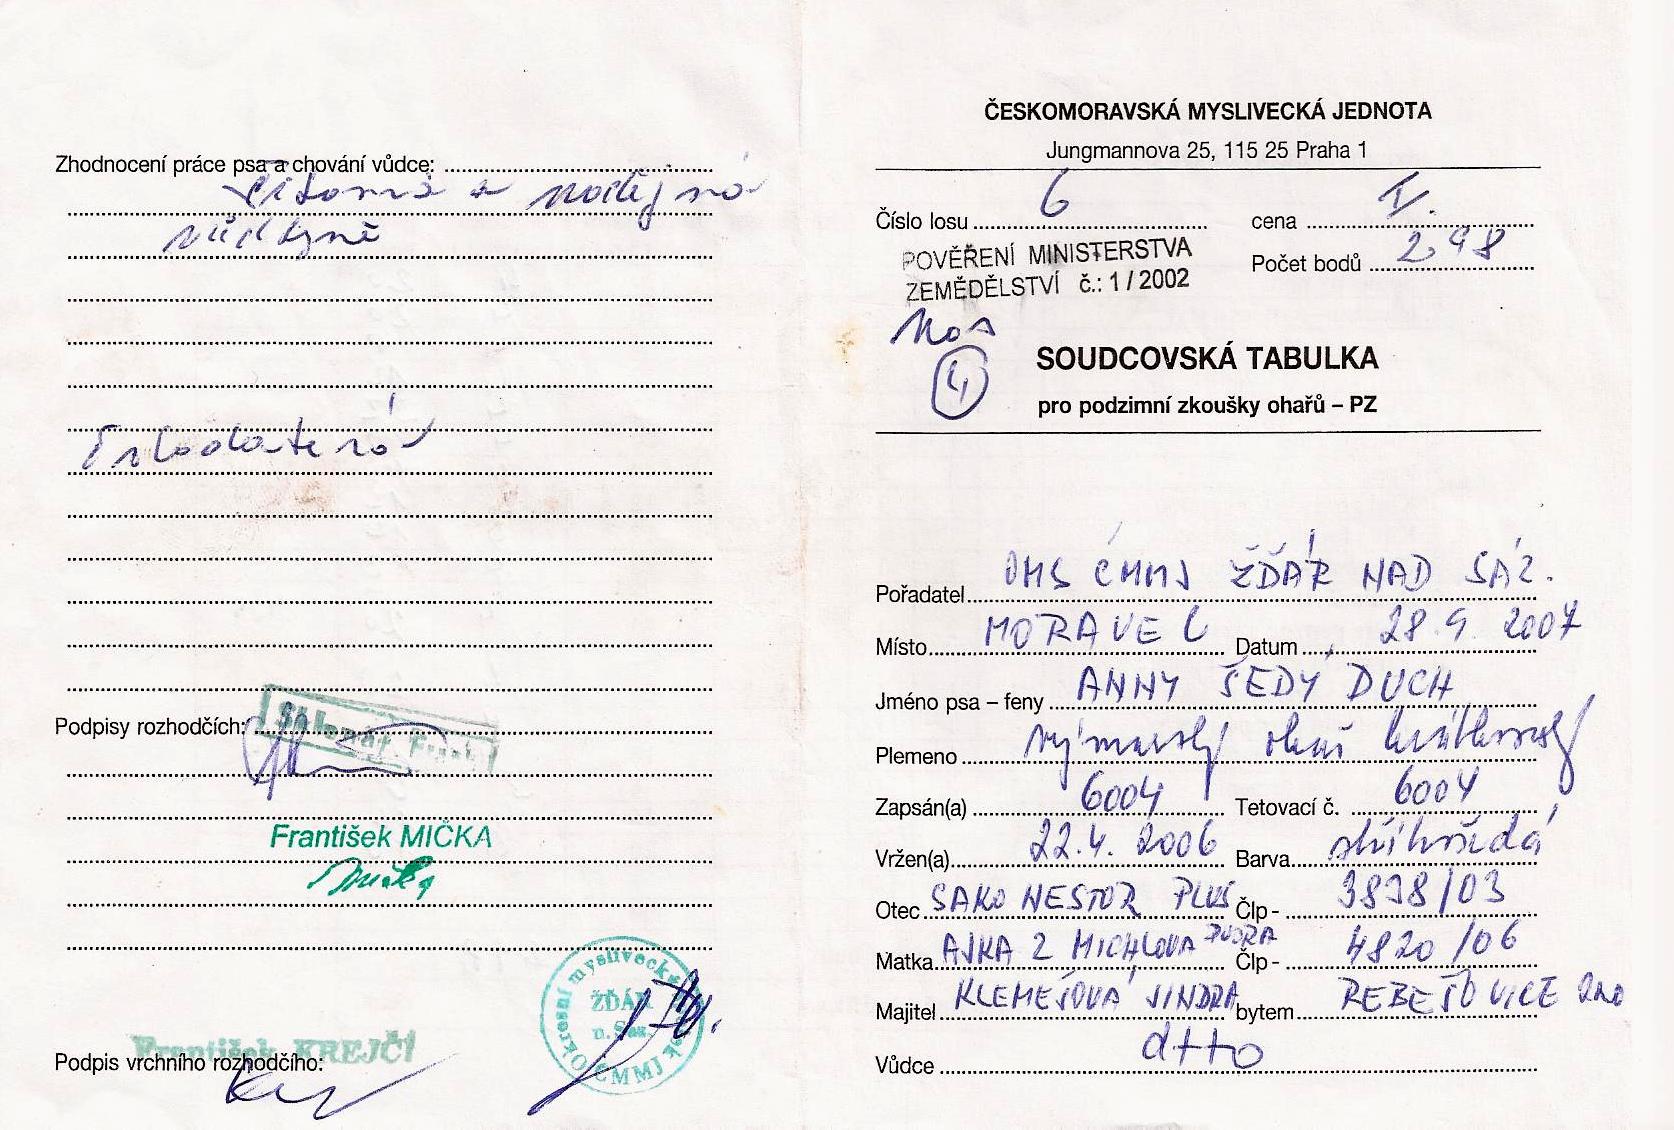 Zhodnocení práce psa a chování vůdce:
vůdkyně
Podpisy rozhodčích:
František MIČKA
František KREJČÍ
Podpis vrchního rozhodčího:
Okresní myslivecký spolek
ŽĎÁR
n. Sáz.
ČMMJ
ČESKOMORAVSKÁ MYSLIVECKÁ JEDNOTA
Jungmannova 25, 115 25 Praha 1
Číslo losu 6 cena I.
POVĚŘENÍ MINISTERSTVA Počet bodů 298
ZEMĚDĚLSTVÍ č.: 1/2002
Nos
4
SOUDCOVSKÁ TABULKA
pro podzimní zkoušky ohařů – PZ
Pořadatel OMS ČMMJ ŽĎÁR NAD SÁZ.
Místo MORAVEC Datum 28.9. 2007
Jméno psa – feny ANNY ŠEDÝ DUCH
Plemeno výmarský ohař krátkosrstý
Zapsán(a) 6004 Tetovací č. 6004
Vržen(a) 22.4. 2006 Barva stříbrošedá
Otec SAKO NESTOR PLUS Člp - 3838/03
Matka AJKA Z MICHLOVA DVORA Člp - 4820/06
Majitel KLEMEŠOVÁ JINDRA bytem ŘEBEŠOVICE
Vůdce dtto